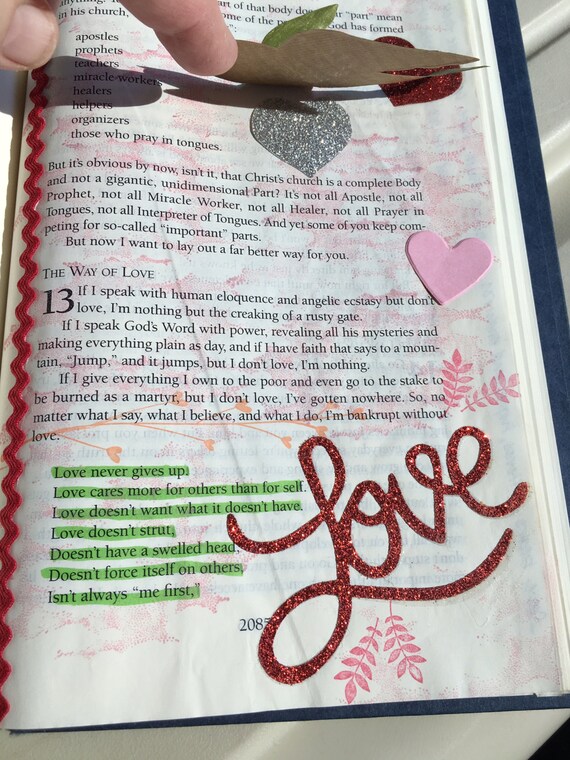 anything.
art of that body does
ar "part" mean
in his church,
some of the
God has formed
apostles
prophets
teachers
miracle workers
healers
helpers
organizers
those who pray in tongues.
But it's obvious by now, isn't it, that Christ's church is a complete Body
and not a gigantic, unidimensional Part? It's not all Apostle, not all
Prophet, not all Miracle Worker, not all Healer, not all Prayer in
Tongues, not all Interpreter of Tongues. And yet some of you keep com-
peting for so-called "important" parts.
But now I want to lay out a far better way for you.
THE WAY OF LOVE
13 If I speak with human eloquence and angelic ecstasy but don't
love, I'm nothing but the creaking of a rusty gate.
If I speak God's Word with power, revealing all his mysteries and
making everything plain as day, and if I have faith that says to a moun-
tain, "Jump," and it jumps, but I don't love, I'm nothing.
If I give everything I own to the poor and even go to the stake to
be burned as a martyr, but I don't love, I've gotten nowhere. So, no
matter what I say, what I believe, and what I do, I'm bankrupt without
love.
Love never gives up.
Love cares more for others than for self.
Love doesn't want what it doesn't have.
Love doesn't strut,
Doesn't have a swelled head,
Doesn't force itself on others,
Isn't always "me first,"
love
2085